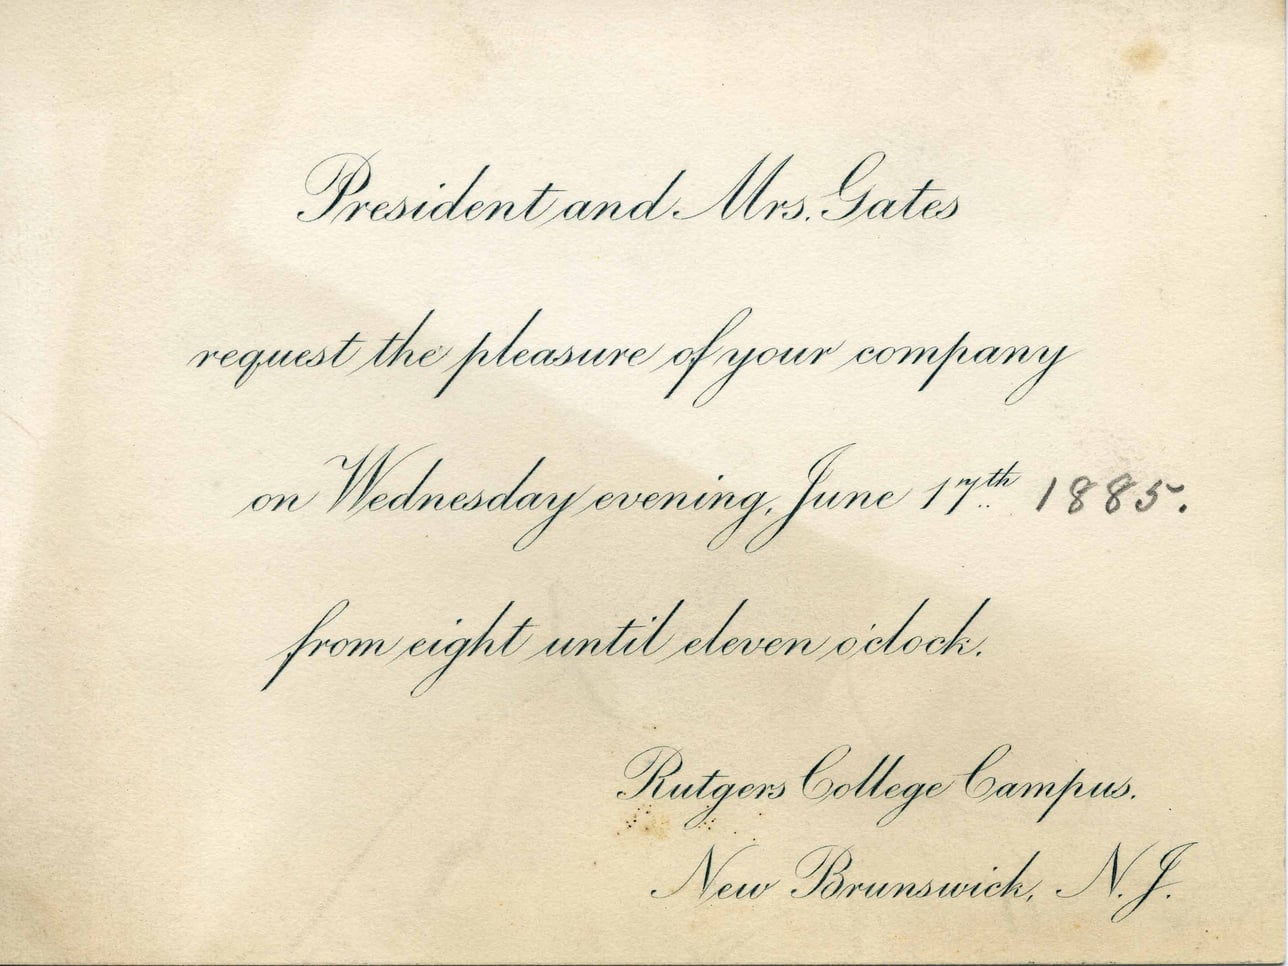 President and Mrs. Gates
request the pleasure of your company
on Wednesday evening, June 17th 1885.
from eight until eleven o'clock.
Rutgers College Campus.
New Brunswick, N.J.